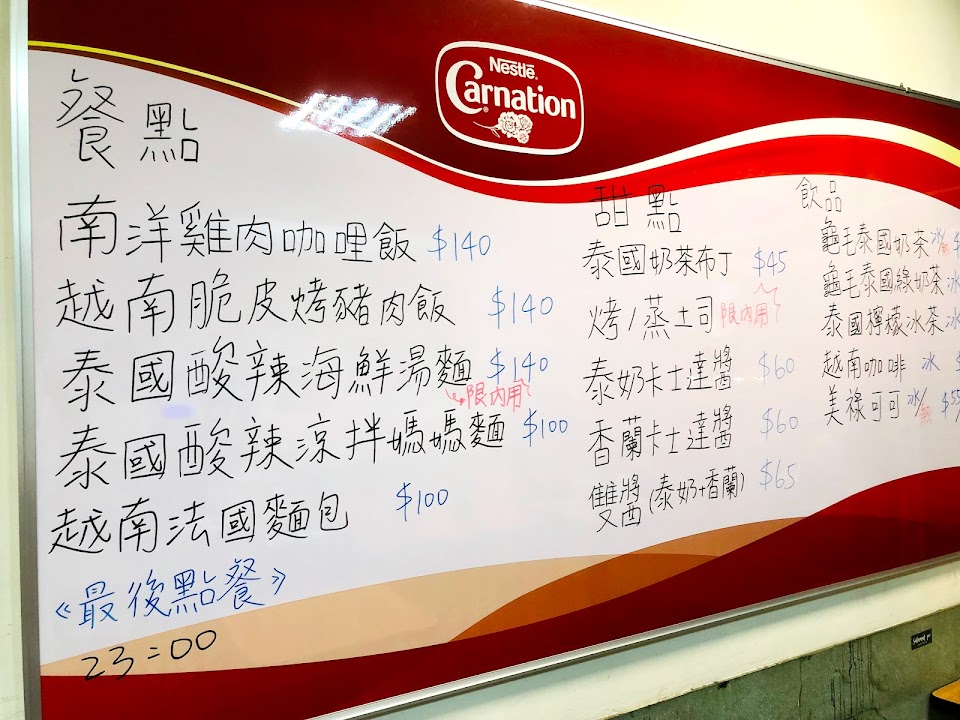 Nestlé
Carnation
餐點
南洋雞肉咖哩飯 $140
越南脆皮烤豬肉飯 $140
泰國酸辣海鮮湯麵 $140
限內用
泰國酸辣涼拌媽媽麵 $100
越南法國麵包 $100
《最後點餐》
23:00
甜點
泰國奶茶布丁 $45
烤/蒸土司 限內用
泰奶卡士達醬 $60
香蘭卡士達醬 $60
雙醬(泰奶+香蘭) $65
飲品
龜毛泰國奶茶 冰
龜毛泰國綠奶茶 冰
泰國檸檬冰茶 冰
越南咖啡 冰
美祿可可 冰/熱 $55